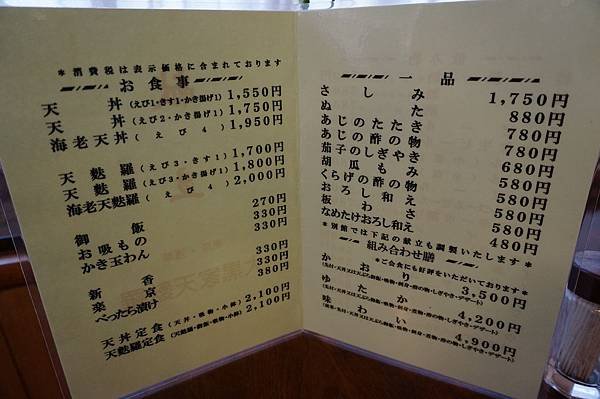 *消費税は表示価格に含まれております
お食事
天丼(えび1・きす1・かき揚げ1) 1,550円
天丼(えび2・かき揚げ1) 1,750円
海老天丼(えび4) 1,950円
天麩羅(えび3・きす1) 1,700円
天麩羅(えび3・かき揚げ1) 1,800円
海老天麩羅(えび4) 2,000円
御飯 270円
お吸もの 330円
かき玉わん 330円
新香 330円
楽京 330円
べったら漬け 380円
天丼定食(天丼・吸物・小鉢) 2,100円
天麩羅定食(天麩羅・御飯・吸物・小鉢) 2,100円
一品
さしみ 1,750円
ぬた 880円
あじのたたき 780円
あじの酢の物 780円
茄子のしぎやき 680円
胡瓜もみ 580円
くらげの酢の物 580円
おろし和え 580円
板わさ 580円
なめたけおろし和え 480円
*別館では下記の献立も調製いたします
組み合わせ膳
*ご会食にも好評をいただいております*
かおり 3,500円
ゆたか 4,200円
味わい 4,900円